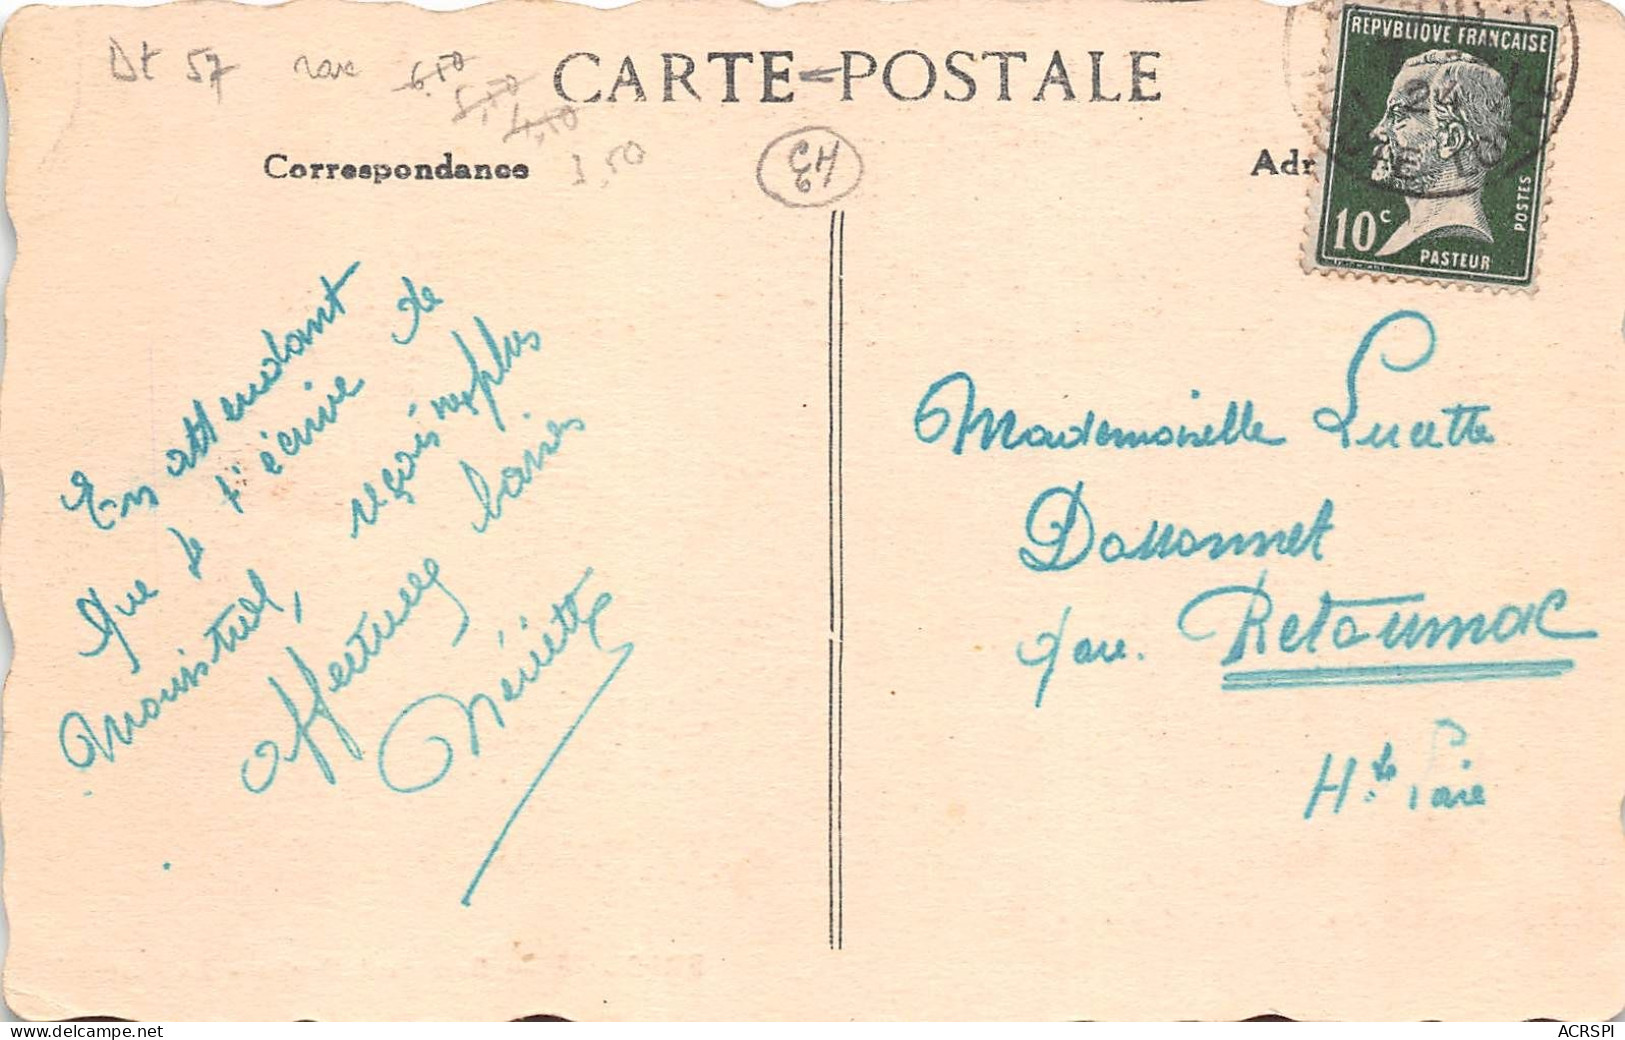 Dt 57 rare 6.50
5,50
4,50
3,50
CARTE-POSTALE
Correspondance
Adr
REPVBLIQVE FRANÇAISE
10c
POSTES
PASTEUR
En attendant
que je t'écrive de
Moustiel, reçois nos plus
affectueux baisers
Mériette
Mademoiselle Lucette
Dassonnet
par Retournac
Hte Loire
delcampe.net
ACRSPI